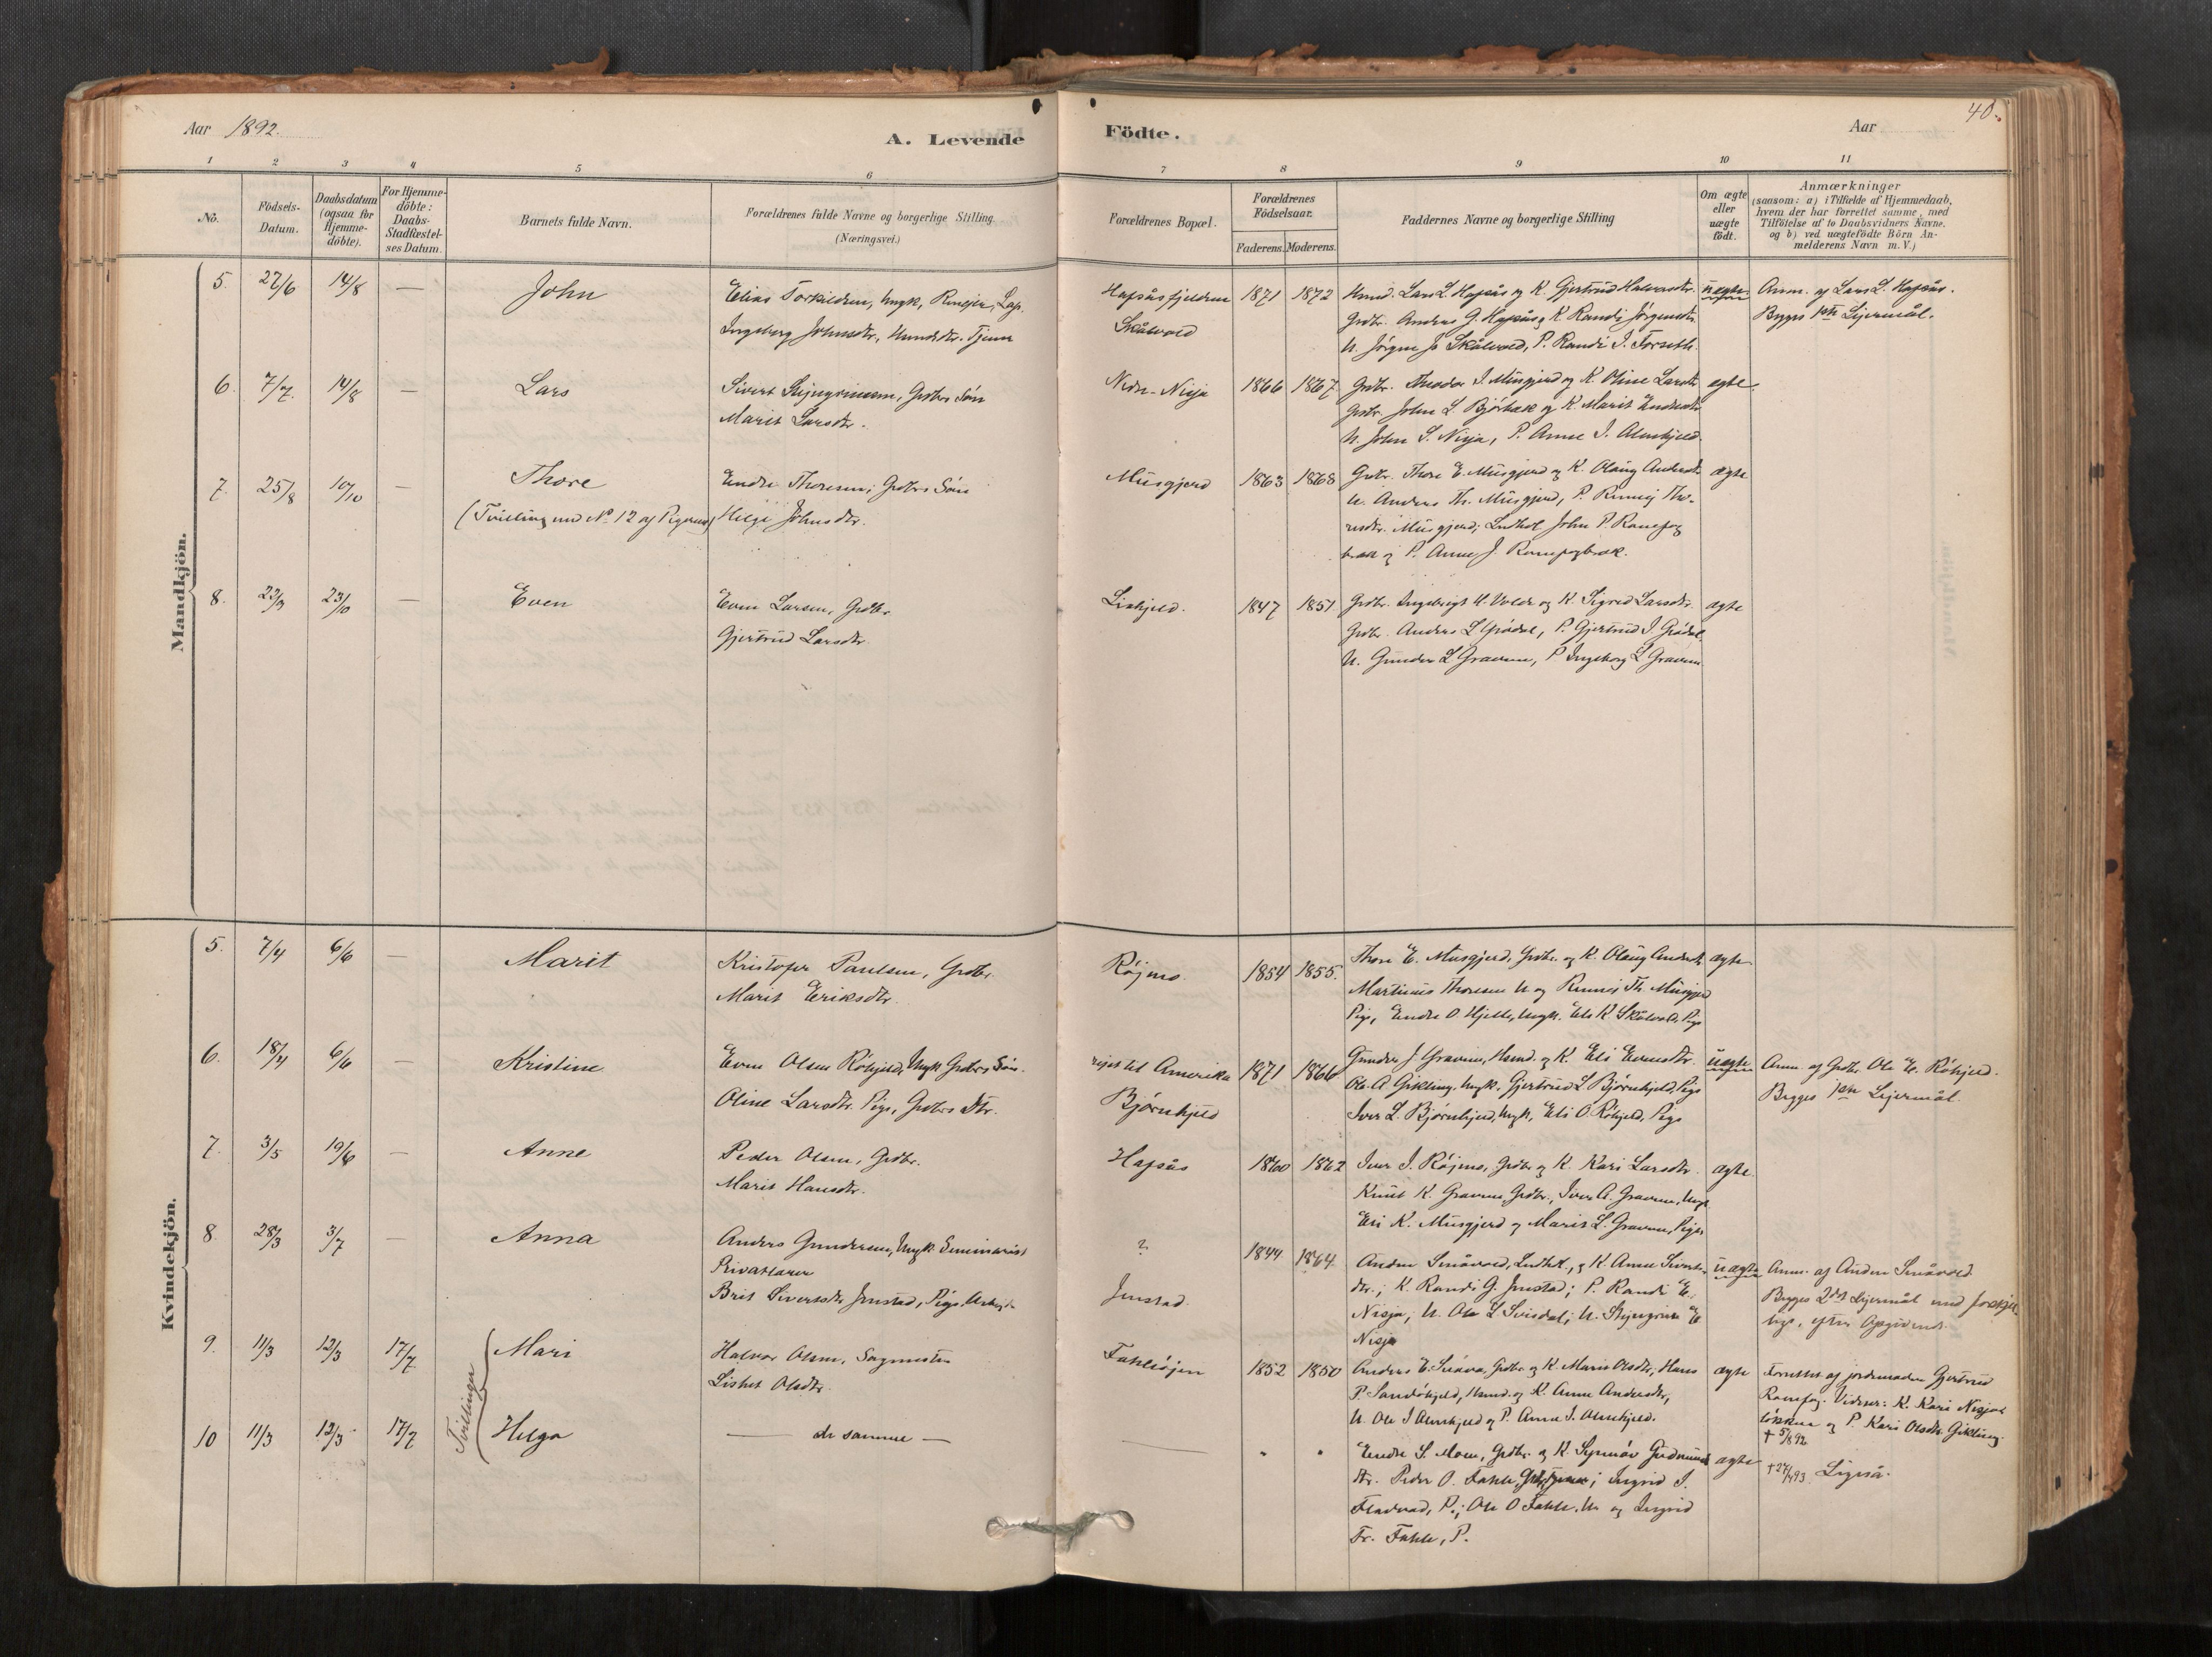 Aar 1892.
A. Levende
Födte.
Aar
40.
1 2 3 4 5 6
7 8 9 10 11
No.
Födsels-
Datum.
Daabsdatum
(ogsaa for
Hjemme-
döbte).
For Hjemme-
döbte:
Daabs-
Stadfæstel-
ses Datum.
Barnets fulde Navn.
Forældrenes fulde Navne og borgerlige Stilling.
(Næringsvei.)
Forældrenes Bopæl.
Forældrenes
Födselsaar.
Faderens. Moderens.
Faddernes Navne og borgerlige Stilling
Om ægte
eller
uægte
födt.
Anmærkninger
(saasom: a) i Tilfælde af Hjemmedaab,
hvem der har forrettet samme, med
Tilföielse af to Daabsvidners Navne.
og b) ved uægtefödte Börn An-
melderens Navn m. V.)
Mandkjön.
5. 27/6 14/8 — John
Elias Torkildsen, Ungk,
Ingeborg Johnsdtr,
Skålvold
1871 1872
Husmd. Lars L. Hafsås og K. Gjertrud Halvorsdtr.
Grdbr. Anders G. Hafsås og K. Randi Jörgensdtr.
U. Jörgen Skålvold, P. Randi I. Forseth.
uægte
Anm. af Lars L. Hafsås.
Begges 1ste Lejermål.
6. 7/7. 14/8 — Lars
Sivert Stejngrimsen, Grdbrs Sön
Marit Larsdtr.
Nedre-Nisja
1866 1867.
Grdbr. Theodor I. Musgjerd og K. Oline Larsdtr
Grdbr. John L. Björbæk og K. Marit Endresdtr
U. John S. Nisja, P. Anne I. Almskjeld.
ægte.
7. 25/8 10/10 — Thore
(Tvilling med No 12 af Pigerne)
Endre Thoresen, Grdbrs Sön
Helge Johnsdtr.
Musgjerd
1863 1868
Grdbr. Thore E. Musgjerd og K. Olaug Andersdtr
U. Anders Th. Musgjerd, P. Runnej Tho-
resdtr. Musgjerd; Indhst. John P.
og P. Anne J.
ægte
8. 22/9 23/10 — Even
Even Larsen, Grdbr.
Gjertrud Larsdtr.
1847 1851
Grdbr. Ingebrigt U. Volde og K. Sigrid Larsdtr.
Grdbr. Anders L Grödal, P. Gjertrud I. Grödal.
U. Gunder L Gravem, P. Ingeborg L Gravem
ægte
Kvindekjön.
5. 7/4 6/6 — Marit
Kristofer Paulsen, Grdbr.
Marit Eriksdtr.
Röjmo.
1854 1855.
Thore E. Musgjerd, Grdbr. og K. Olaug Andersdtr
Martinus Thoresen U. og Runnej Th. Musgjerd
Pige, Endre O. Hjelle, Ungk. Eli K Skålvold, Pige
ægte
6. 18/4 6/6 — Kristine
Even Olsen Röhjeld, Ungk Grdbrs Sön.
Oline Larsdtr. Pige, Grdbrs Dtr.
rejst til Amerika
Björnhjeld
1871 1866
Gunder J. Gravem, Husmd. og K. Eli Evensdtr.
Ole A Gikling, Ungk. Gjertrud L Björnhjeld, Pige
Iver L. Björnhjeld, Ungk, Eli O. Röhjeld, Pige
uægte
Anm. af Grdbr. Ole E. Röhjeld.
Begges 1ste Lejermål.
7. 3/5 19/6 — Anne
Peder Olsen, Grdbr.
Marit Hansdtr.
Hafsås
1860 1862
Iver I. Röjmo, Grdbr og K. Kari Larsdtr.
Knut K. Gravem Grdbr., Iver A. Gravem, Ungk
Eli K. Musgjerd og Marit L. Gravem, Piger
ægte.
8 28/3 3/7 — Anna
Anders Gundersen, Ungk. Seminarist
Privatlærer
Brit Sivertsdtr Jenstad, Pige.
?
Jenstad.
1844 1864
Anders Småvold, Indhst., og K. Anne Siverts-
dtr.; K. Randi G. Jenstad; P. Randi E.
Nisja, U. Ole L Svisdal; U. Stejngrim E
Nisja
uægte
Anm. af Anders Småvold.
Begges 2det Lejermål med forskjel-
lige, efter Opgivende.
Tvillinger
9. 11/3 12/3 17/7 Mari
Halvor Olsen, Sagmester
Lisbet Olsdtr.
1852 1850
Anders E. Snöva, Grdbr. og K. Marit Olsdtr, Hans
P. Sandökjeld, Husmd. og K. Anne Andersdtr,
U. Ole I Almskjeld og P. Anne I. Almskjeld.
ægte
Forrettet af jordemoder Gjertrud
Vidner: K. Kari
og P. Kari Olsdtr. Gikling.
† 5/8 92
10 11/3 12/3 17/7 Helga
— de samme —
—
" "
Endre S. Moen, Grdbr. og K. Synnöv Gudmunds-
dtr. Peder O. Fahle, ; Ingrid I.
Fladvad, P.; Ole O Fahle, U. og Ingrid
Tr. Fahle, P.
ægte
† 27/4 93